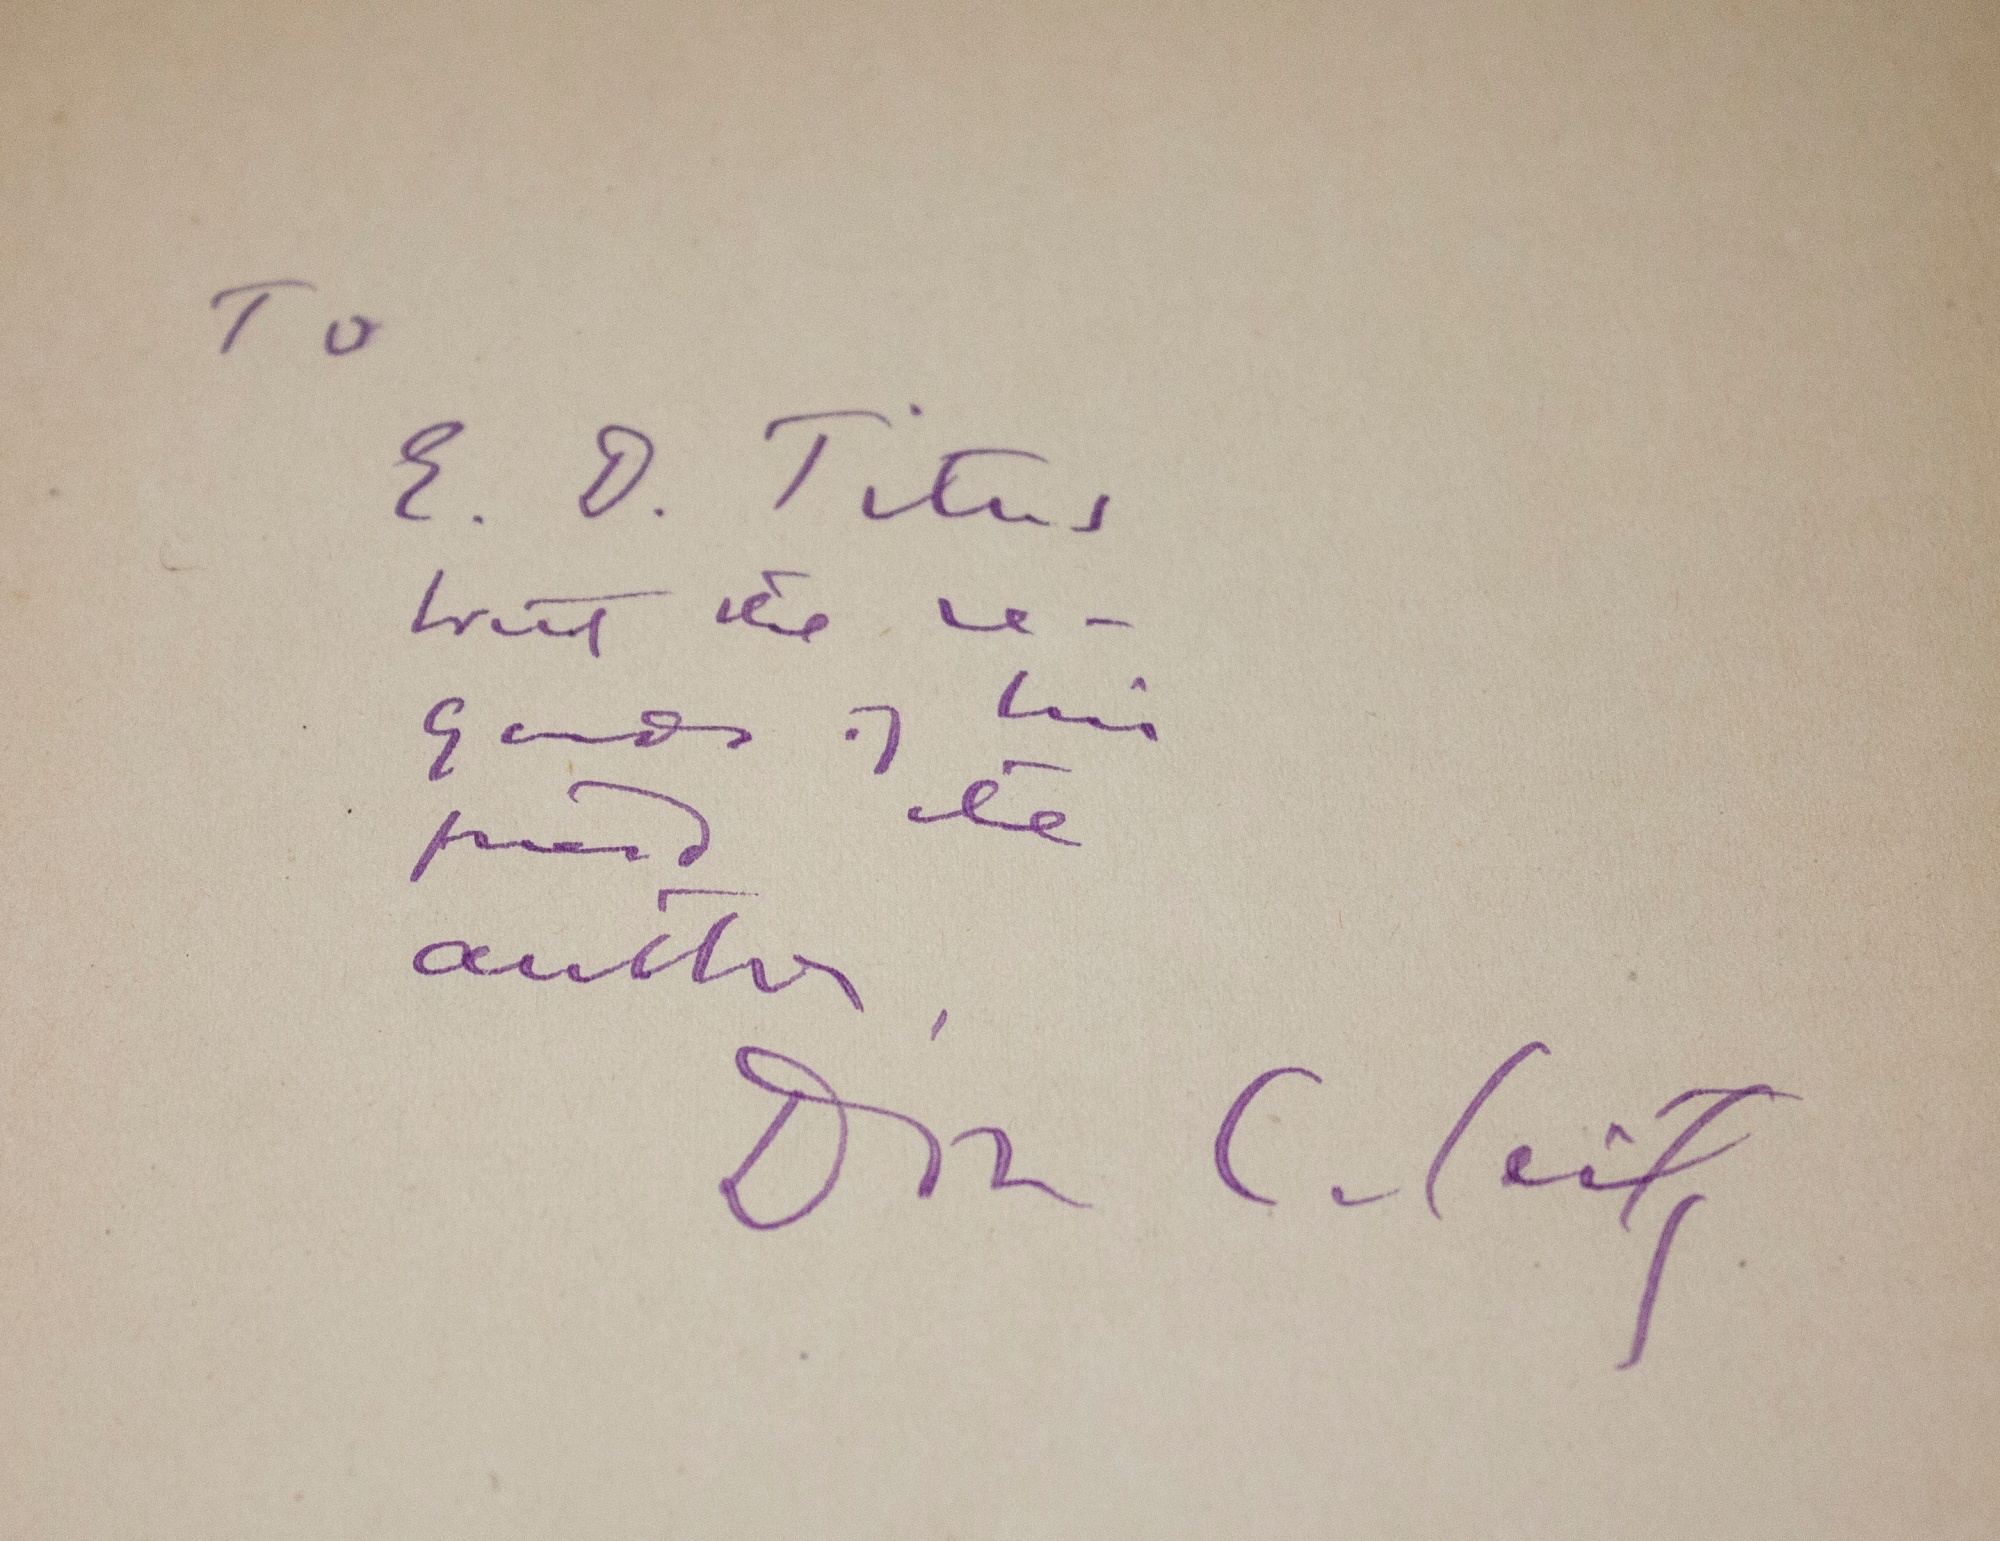 To
E. D. Titus
with the re-
gards of his
friend the
author,
Don C. Seitz